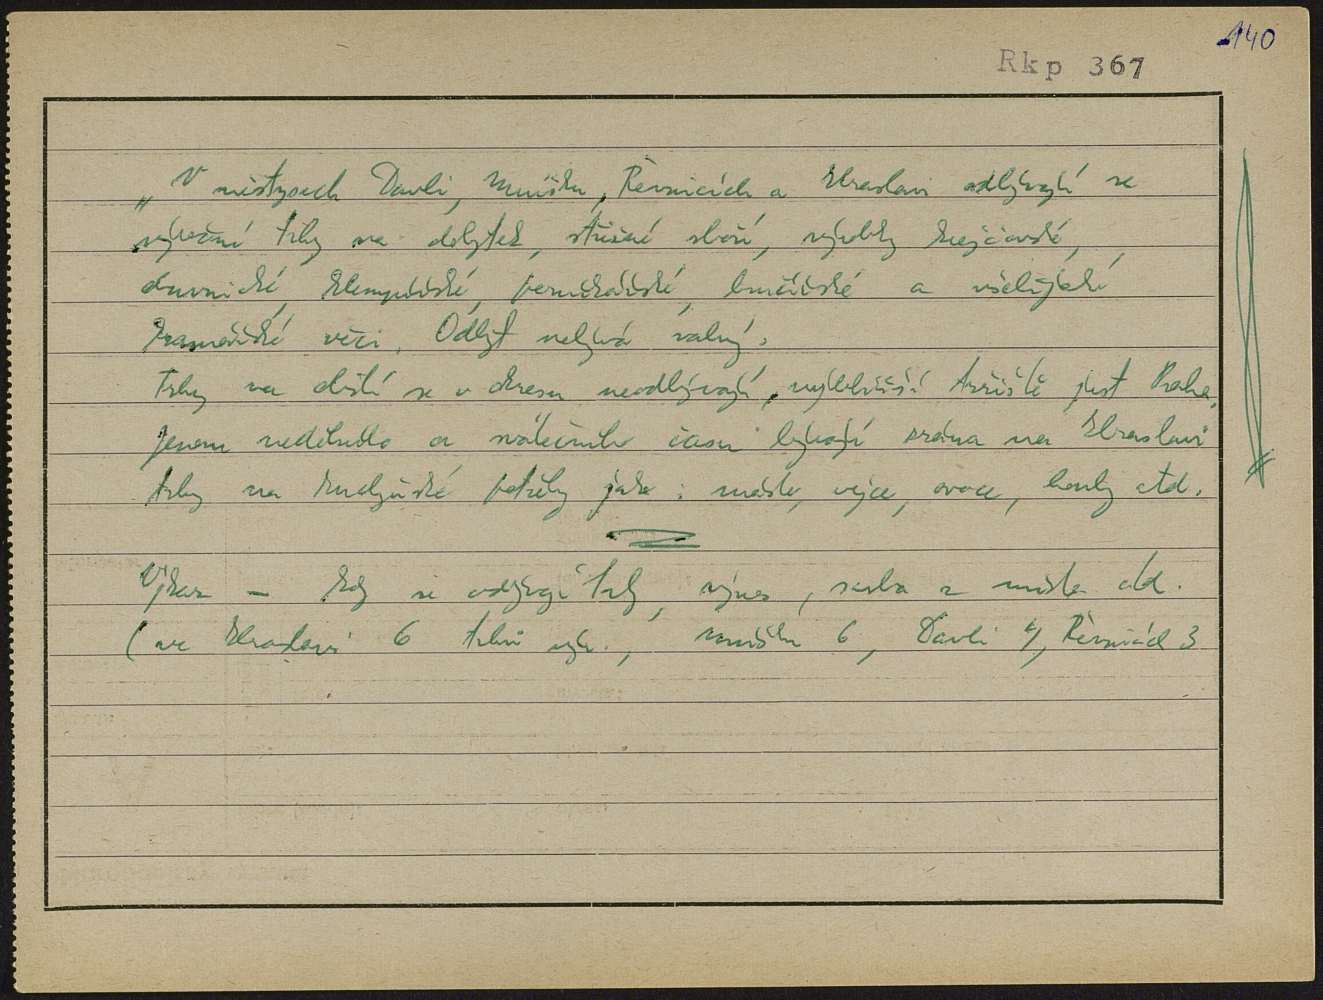 140
Rkp 367
„V městysech Davli, Mníšku, Řevnicích a Zbraslavi odbývají se
výroční trhy na dobytek, střižné zboží, výrobky krejčovské,
klempířské, perníkářské, hrnčířské a všelijaké
kramářské věci. Odbyt nebývá valný.
Trhy na obilí se v okresu neodbývají, nejbližší tržiště jest Praha,
jenom nedělního a svátečního času bývají zrána na Zbraslavi
trhy na kuchyňské potřeby jako: máslo, vejce, ovoce, houby atd.
Výkaz – kdy se odbývají trhy, výnos, sazba z místa atd.
(ve Zbraslavi 6 trhů výr., Mníšku 6, Davli 4, Řevnicích 3